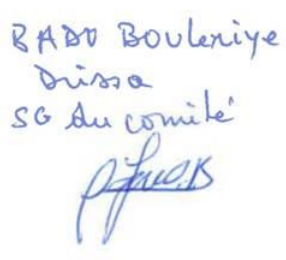 BADO Bouleriye
Drissa
SG du comité